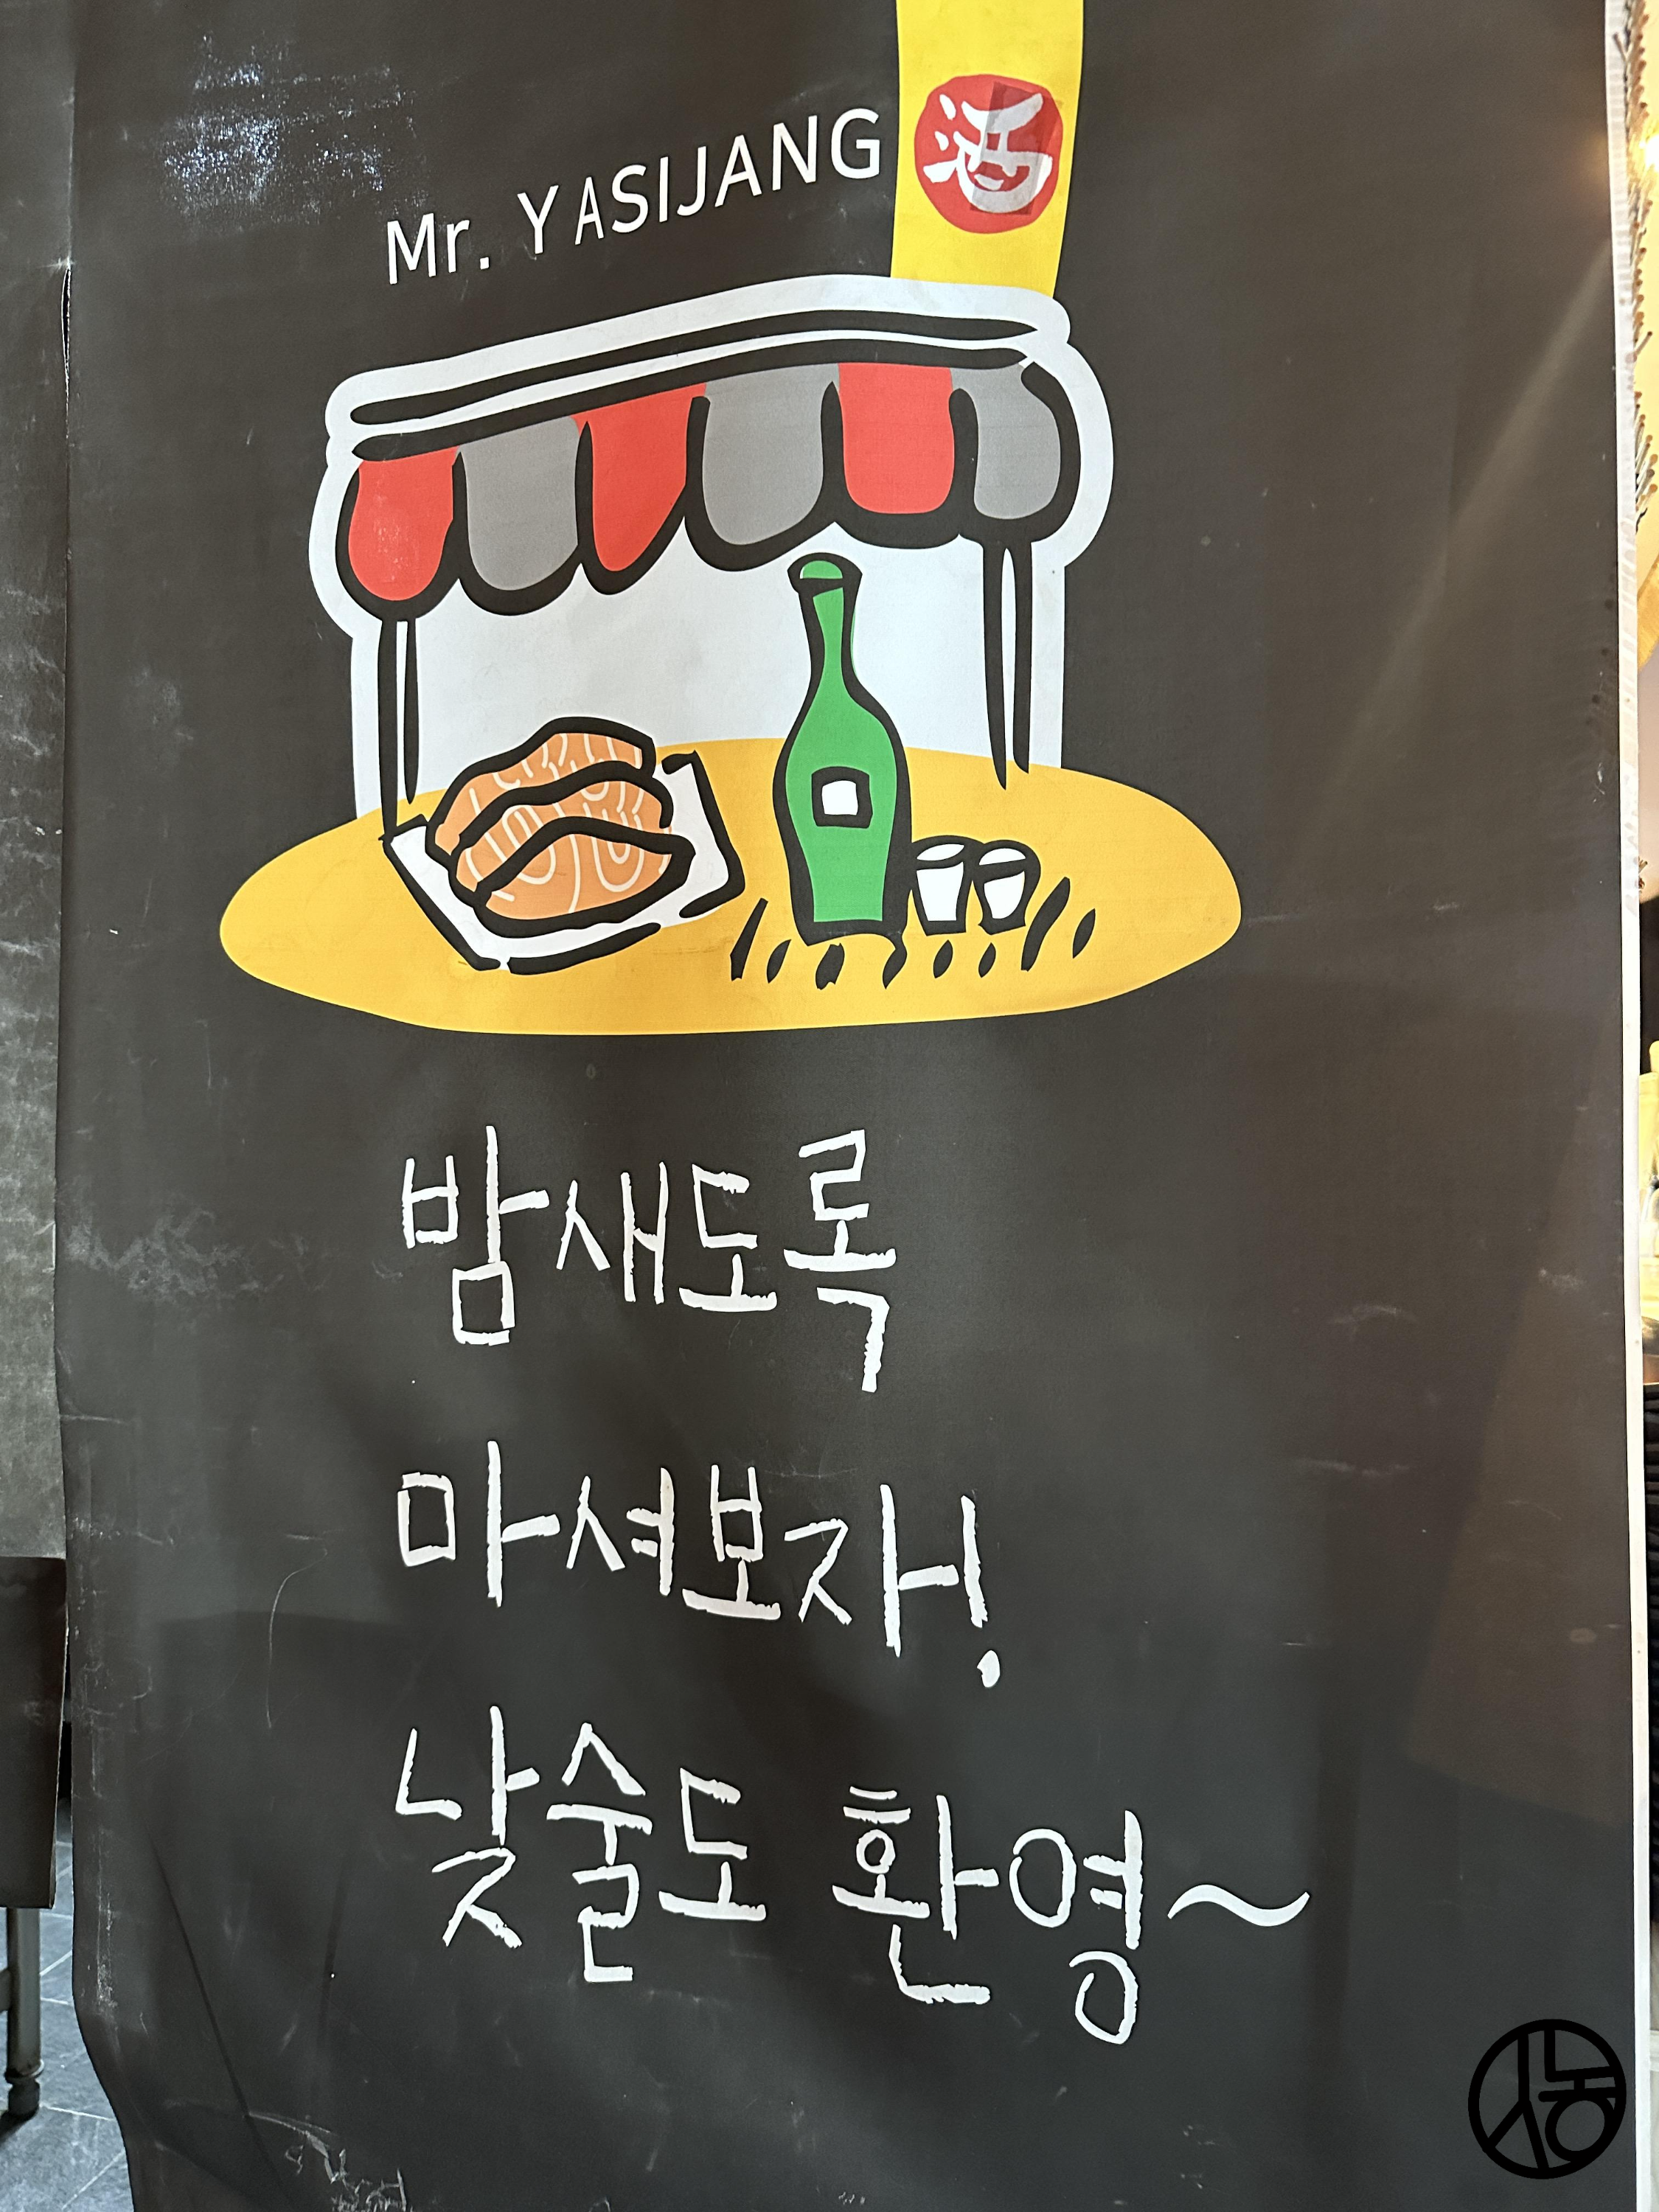 Mr. YASIJANG
酒
밤새도록
마셔보자!
낮술도 환영~